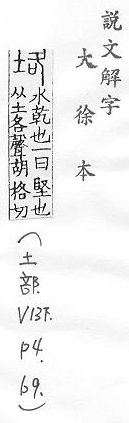 說文解字
大徐本
垎
水乾也一曰堅也
从土各聲胡格切
(土部. V13下. P4. 69.)